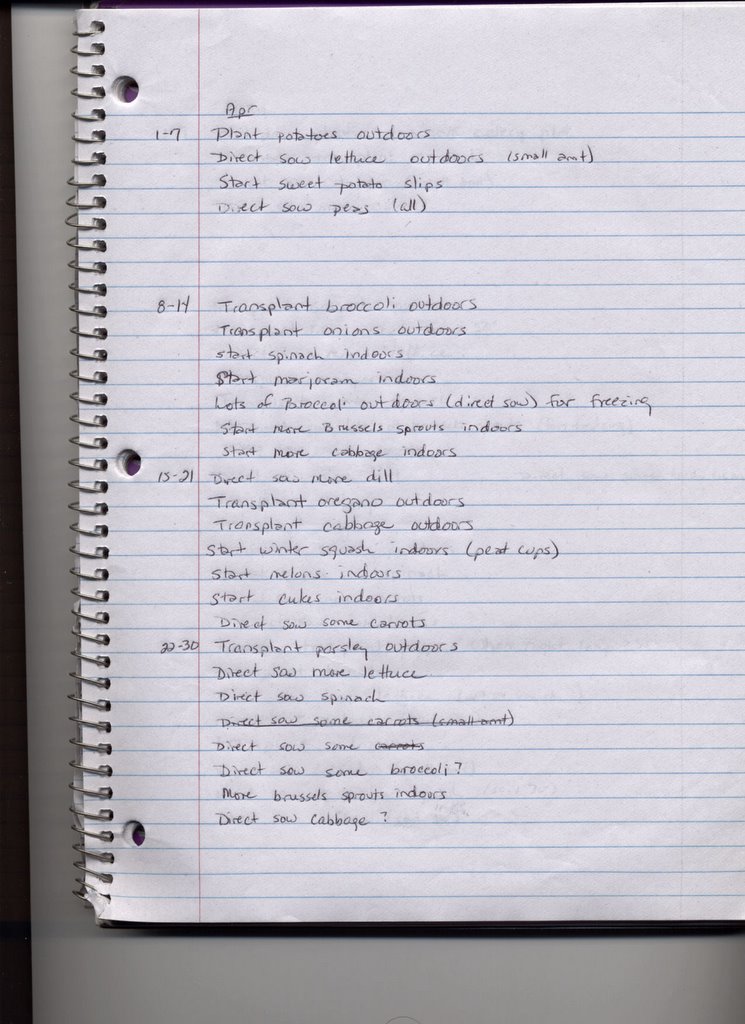 Apr
1-7 Plant potatoes outdoors
Direct sow lettuce outdoors (small amt)
Start sweet potato slips
Direct sow peas (all)
8-14 Transplant broccoli outdoors
Transplant onions outdoors
start spinach indoors
Start marjoram indoors
Lots of Broccoli outdoors (direct sow) for freezing
Start more Brussels sprouts indoors
Start more cabbage indoors
15-21 Direct sow more dill
Transplant oregano outdoors
Transplant cabbage outdoors
Start winter squash indoors (peat cups)
Start melons indoors
Start cukes indoors
Direct sow some carrots
22-30 Transplant parsley outdoors
Direct sow more lettuce
Direct sow spinach
Direct sow some carrots (small amt)
Direct sow some carrots
Direct sow some broccoli?
More brussels sprouts indoors
Direct sow cabbage?